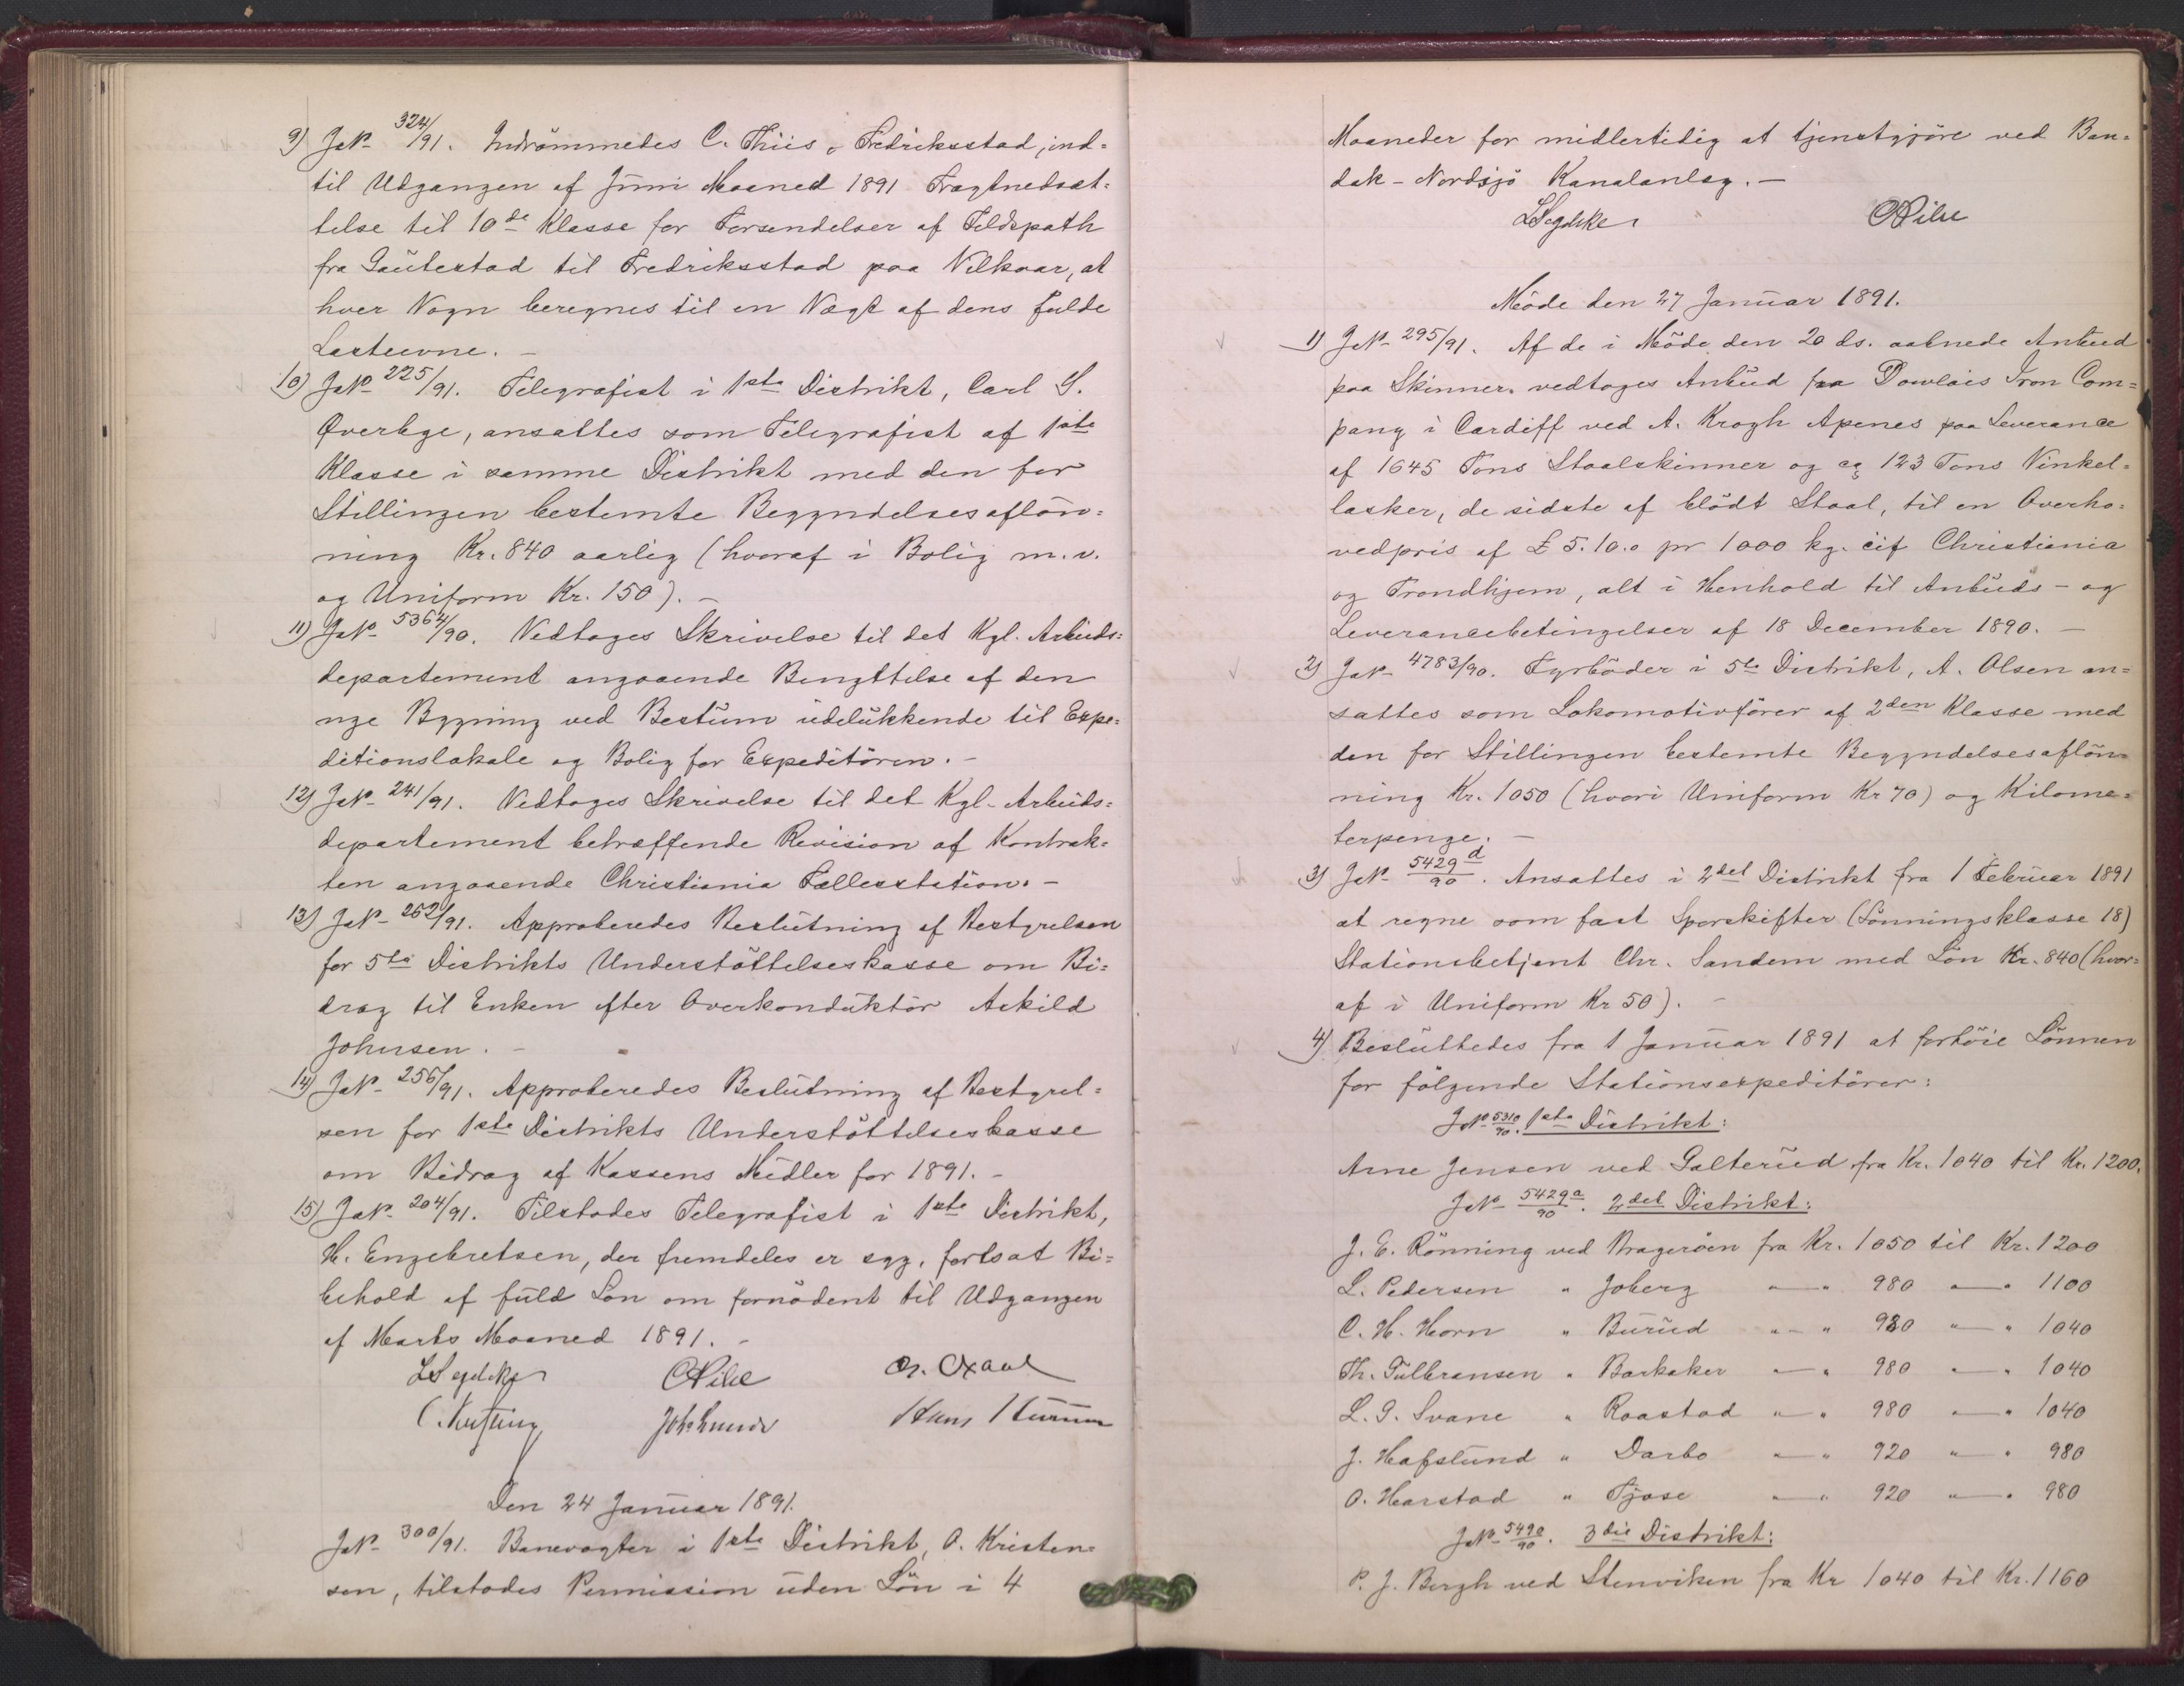 9) JNo 324/91. Indrömmedes C. Thiis, Fredriksstad, ind=
til Udgangen af Juni Maaned 1891 Fragtnedsæt=
telse til 10de Klasse for Forsendelser af Feldspath
fra Gautestad til Fredriksstad paa Vilkaar, at
hver Vogn beregnes til en Vægt af dens fulde
Lasteevne. –
10) JNo 225/91. Telegrafist i 1ste Distrikt, Carl S.
Øverbye, ansattes som Telegrafist af 1ste
Klasse i samme Distrikt med den for
Stillingen bestemte Begyndelsesaflön=
ning Kr. 840 aarlig (hvoraf i Bolig m. v.
og Uniform Kr. 150). –
11) JNo 5364/90. Vedtoges Skrivelse til det Kgl. Arbeids=
departement angaaende Benyttelse af den
nye Bygning ved Bestum udelukkende til Expe=
ditionslokale og Bolig for Expeditören. –
12) JNo 241/91. Vedtoges Skrivelse til det Kgl. Arbeids=
departement betræffende Revision af Kontrak=
ten angaaende Christiania Fællesstation. –
13) JNo 252/91. Approberedes Beslutning af Bestyrelsen
for 5te Distrikts Understöttelseskasse om Bi=
drag til Enken efter Overkonduktör Askild
Johnsen. –
14) JNo 256/91. Approberedes Beslutning af Bestyrel=
sen for 1ste Distrikts Understöttelseskasse
om Bidrag af Kassens Midler for 1891. –
15) JNo 204/91. Tilstodes Telegrafist i 1ste Distrikt,
H. Engebretsen, der fremdeles er syg, fortsat Bi=
behold af fuld Lön om fornödent til Udgangen
af Marts Maaned 1891. –
LSegelcke CPihl
Den 24 Januar 1891.
JNo 300/91. Banevogter i 1ste Distrikt, O. Kristen=
sen, tilstodes Permission uden Lön i 4
Maaneder for midlertidig at tjenstgjöre ved Ban=
dak – Nordsjö Kanalanlæg. –
LSegelcke CPihl
Möde den 27 Januar 1891.
1) JNo 295/91. Af de i Möde den 20 ds. aabnede Anbud
paa Skinner vedtoges Anbud fra Dowlais Iron Com=
pany i Cardiff ved A. Krogh Apenes paa Leverance
af 1645 Tons Staalskinner og ca 123 Tons Vinkel=
lasker, de sidste af blödt Staal, til en Overho=
vedpris af £ 5.10.0 pr 1000 kg. cif Christiania
og Trondhjem, alt i Henhold til Anbuds – og
Leverancebetingelser af 18 December 1890. –
2) JNo 4783/90. Fyrböder i 5te Distrikt, A. Olsen an=
sattes som Lokomotivförer af 2den Klasse med
den for Stillingen bestemte Begyndelsesaflön=
ning Kr. 1050 (hvori Uniform Kr 70) og Kilome=
terpenge. –
3) JNo 5429d/90. Ansattes i 2det Distrikt fra 1 Februar 1891
at regne som fast Sporskifter (Lönningsklasse 18)
Stationsbetjent Chr. Sandem med Lön Kr. 840 (hvor=
af i Uniform Kr 50). –
4) Besluttedes fra 1 Januar 1891 at forhöie Lönnen
for fölgende Stationsexpeditörer:
JNo 5310/90. 1ste Distrikt:
Arne Jensen ved Galterud fra Kr. 1040 til Kr. 1200.
JNo 5429a/90. 2det Distrikt:
J. E. Rönning ved Bragerøen fra Kr. 1050 til Kr. 1200
L. Pedersen " Joberg " – " 980 " – " 1100
C. H. Horn " Burud " – " 980 " – " 1040
Th. Gulbransen " Barkaker " – " 980 " – " 1040
L. G. Svane " Raastad " – " 980 " – " 1040
J. Hafslund " Darbo " – " 920 " – " 980
O. Harstad " Tjose " – " 920 " – " 980
JNo 5490/90. 3die Distrikt:
P. J. Bergh ved Stenviken fra Kr 1040 til Kr. 1160